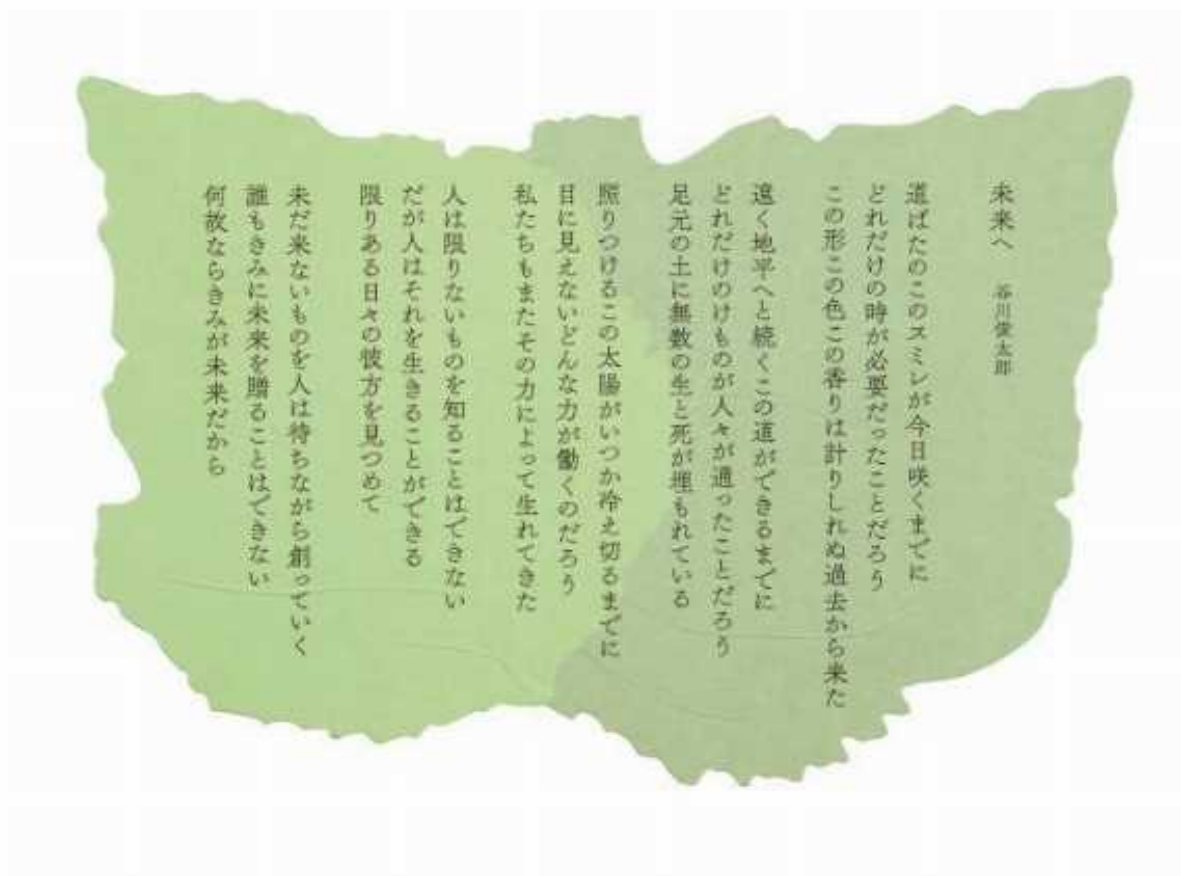 未来へ 谷川俊太郎
道ばたのこのスミレが今日咲くまでに
どれだけの時が必要だったことだろう
この形この色この香りは計りしれぬ過去から来た
遠く地平へと続くこの道ができるまでに
どれだけのけものが人々が通ったことだろう
足元の土に無数の生と死が埋もれている
照りつけるこの太陽がいつか冷え切るまでに
目に見えないどんな力が働くのだろう
私たちもまたその力によって生れてきた
人は限りないものを知ることはできない
だが人はそれを生きることができる
限りある日々の彼方を見つめて
未だ来ないものを人は待ちながら創っていく
誰もきみに未来を贈ることはできない
何故ならきみが未来だから